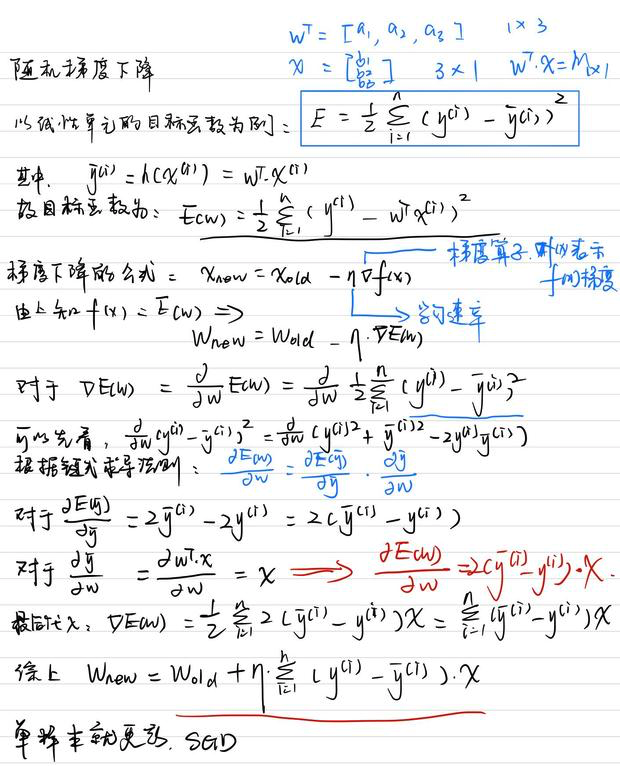 wᵀ = [a₁, a₂, a₃] 1×3
随机梯度下降 x = [b₁ b₂ b₃] 3×1 wᵀ·x = M₁ₓ₁
以线性单元的目标函数为例: E = 1/2 Σ_{i=1}^{n} (y⁽ⁱ⁾ - ȳ⁽ⁱ⁾)²
其中. ȳ⁽ⁱ⁾ = h(x⁽ⁱ⁾) = wᵀ·x⁽ⁱ⁾
故目标函数为: E(w) = 1/2 Σ_{i=1}^{n} (y⁽ⁱ⁾ - wᵀx⁽ⁱ⁾)²
梯度下降的公式: x_new = x_old - η∇f(x) 梯度算子.
表示
f的梯度
由上知 f(x) = E(w) ⇒ 学习速率
w_new = w_old - η·∇E(w)
对于 ∇E(w) = ∂/∂w E(w) = ∂/∂w 1/2 Σ_{i=1}^{n} (y⁽ⁱ⁾ - ȳ⁽ⁱ⁾)²
可以先看, ∂/∂w (y⁽ⁱ⁾ - ȳ⁽ⁱ⁾)² = ∂/∂w (y⁽ⁱ⁾² + ȳ⁽ⁱ⁾² - 2y⁽ⁱ⁾ȳ⁽ⁱ⁾)
根据链式求导法则: ∂E(w)/∂w = ∂E(ȳ)/∂ȳ · ∂ȳ/∂w
对于 ∂E(ȳ)/∂ȳ = 2ȳ⁽ⁱ⁾ - 2y⁽ⁱ⁾ = 2(ȳ⁽ⁱ⁾ - y⁽ⁱ⁾)
对于 ∂ȳ/∂w = ∂wᵀ·x/∂w = x ⇒ ∂E(w)/∂w = 2(ȳ⁽ⁱ⁾ - y⁽ⁱ⁾)·x.
最后代入: ∇E(w) = 1/2 Σ_{i=1}^{n} 2(ȳ⁽ⁱ⁾ - y⁽ⁱ⁾)x = Σ_{i=1}^{n} (ȳ⁽ⁱ⁾ - y⁽ⁱ⁾)x
综上 w_new = w_old + η·Σ_{i=1}^{n} (y⁽ⁱ⁾ - ȳ⁽ⁱ⁾)·x
单样本就更新. SGD